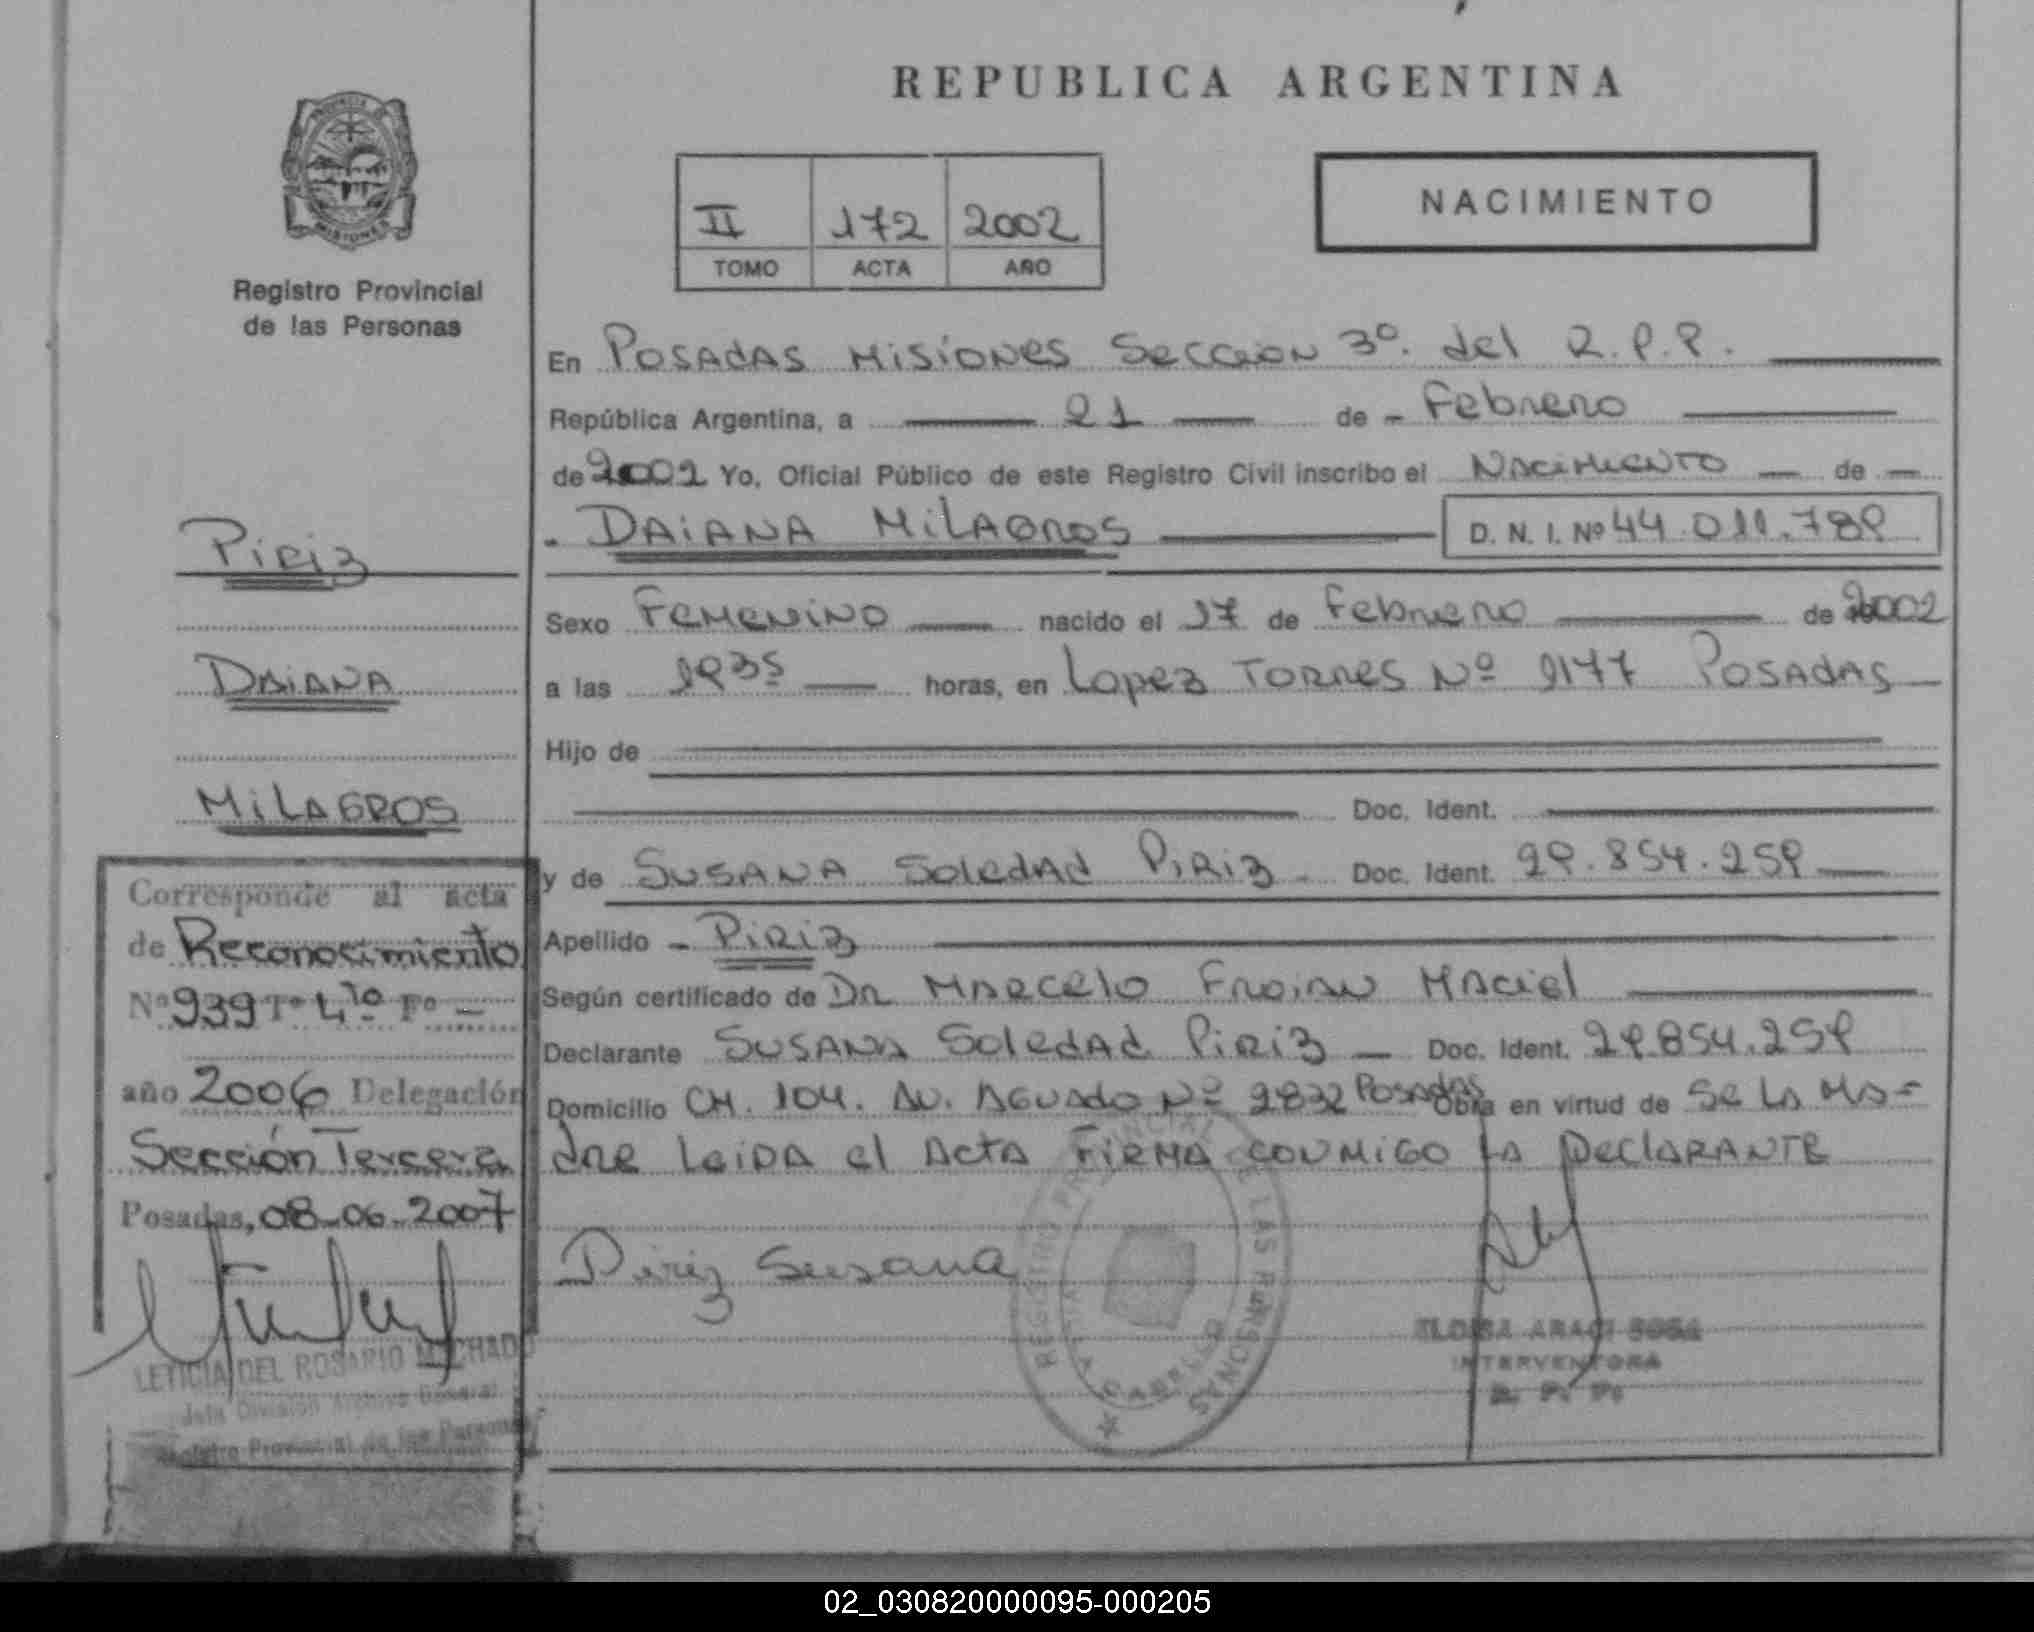 REPUBLICA ARGENTINA
PROVINCIA DE
MISIONES
Registro Provincial
de las Personas
II 172 2002
TOMO ACTA AÑO
NACIMIENTO
En POSADAS MISIONES SECCION 3º. del R.P.P.
República Argentina, a 21 de - Febrero
de 2002 Yo, Oficial Público de este Registro Civil inscribo el NACIMIENTO de
DAIANA MILAGROS D. N. I. Nº 44.011.789
Sexo FEMENINO nacido el 17 de Febrero de 2002
a las 1935 horas, en Lopez TORRES Nº 1177 POSADAS
Hijo de
Doc. Ident.
y de SUSANA SoledAd PIRIZ - Doc. Ident. 29.854.259
Apellido - PIRIZ
Según certificado de DR MARCELO FROILAN MACIEL
Declarante SUSANA SoledAd PIRIZ Doc. Ident. 29.854.259
Domicilio CH. 104. AV. AGUADO Nº 2832 POSADAS Obra en virtud de Se LA MA=
dRE LEIDA el ACTA FIRMA CONMIGO LA DECLARANTE
Piriz Susana
REGISTRO PROVINCIAL DE LAS PERSONAS
ELOISA ARACI SOSA
INTERVENTORA
R. P. P.
PIRIZ
DAIANA
MILAGROS
Corresponde al acta
de Reconocimiento
Nº 939 Tº 4to Fº -
año 2006 Delegación
Sección Tercera
Posadas, 08-06-2007
LETICIA DEL ROSARIO MACHADO
Jefa División Archivo General
Registro Provincial de las Personas
02_030820000095-000205